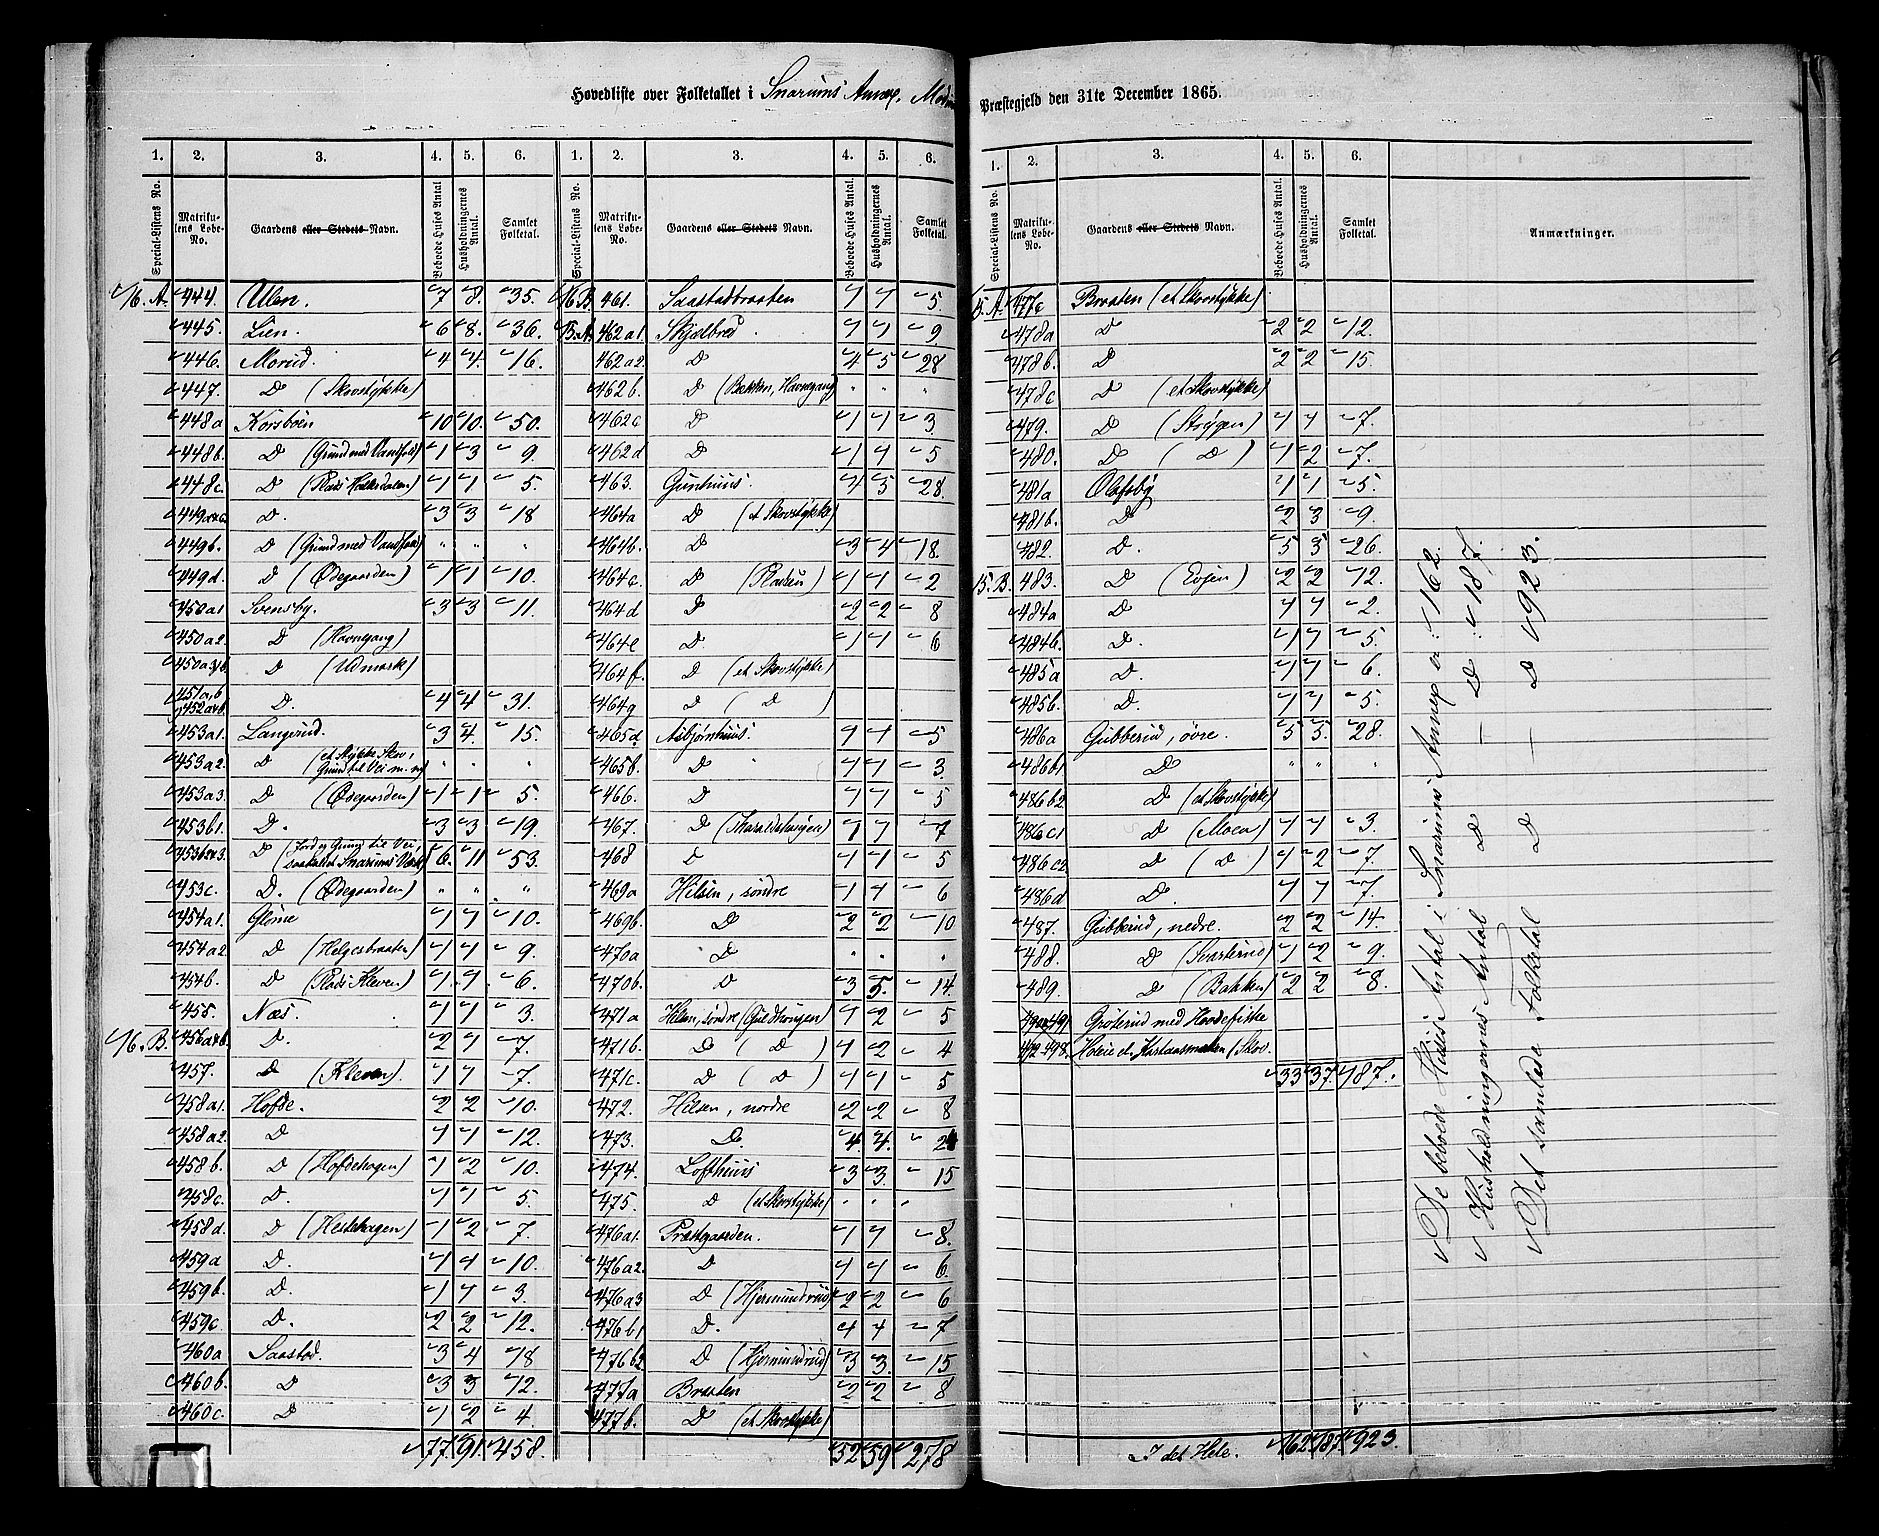 Hovedliste over Folketallet i Snarums Annex. Modum
Præstegjeld den 31te December 1865.
1. 2. 3. 4. 5. 6. 1. 2. 3. 4. 5. 6.
Special-Listens No. Matrikulens Løbe-No. Gaardens eller Stedets Navn. Beboede Huses Antal. Husholdningernes Antal. Samlet Folketal. Special-Listens No. Matrikulens Løbe-No. Gaardens eller Stedets Navn. Beboede Huses Antal. Husholdningernes Antal. Samlet Folketal.
16. A. 444. Ulen. 7 8. 35. 16 B. 461. Saastadbraaten 1 1 5
445. Lien. 6 8. 36. 15. A. 462a1. Skjælbred 1 1 9
446. Morud. 4 4. 16. 462a2. D 4 5 28
447. D (Skovstykke) 462b. D (Bakken, Havnegang) " " "
448a Korsbøen 10 10. 50. 462c D 1 1 3
448b. D (Grund med Vandfald) 1 3 9 462d D 1 1 5
448c. D (Plads Holtesdalen) 1 1 5. 463. Gunhuus. 4 5 28.
449a+c. D. 3 3 18 464a D (et Skovstykke)
449b. D (Grund med Vandfald) " " " 464b. D 3 4 18.
449d. D (Ødegaarden) 1 1 10. 464c. D (Plassen) 1 1 2
450a1 Svensby. 3 3 11. 464d D 2 2 8
450a2. D (Havnegang) 464e D. 1 1 6
450a3,b D (Udmark) 464f. D (et Skovstykke)
451a,b 452a+b. D. 4 4 31. 464g D ( D )
453a1. Langerud. 3 4. 15. 465a Asbjørnhuus. 1 1 5
453a2. D (et Stykke Skov, Grund til Vei m.m.) " " " 465b. D 1 1 3
453a3. D (Ødegaarden) 1 1 5. 466. D 1 1 5
453b1. D. 3 3 19. 467. D (Haraldshaugen) 1 1 7
453b2+3. D (Jord og Grund til Vei, saakaldet Snarums Værk) 6. 11 53. 468 D 1 1 5
453c. D. (Ødegaarden) " " " 469a Hilsen, søndre 1 1 6
454a1. Glome 1 1 10. 469b. D 2 2 10
454a2. D (Helgesbraaten) 1 1 9. 470a D " " "
454b. D (Plads Kleven) 1. 1. 6. 470b. D 3 5. 14.
455. Næs. 1 1 3. 471a Hilsen, søndre (Guldhaugen) 1 2 5
16. B. 456a+b. D. 2 1 7. 471b D ( D ) 1 2 4
457. D (Kleven). 1 1 7. 471c. D ( D ) 1 1 5
458a1. Hofde. 2 2 10. 472. Hilsen, nordre 2 2 8
458a2. D 1 1 12. 473. D. 4. 4. 21
458b. D (Hofdehagen) 1 2 10. 474. Lofthuus 3 3. 15
458c. D. 1 1 5. 475. D (et Skovstykke) " " "
458d. D (Hestehagen) 1 2 7. 476a1. Præstgaarden. 1 1 8.
459a D. 1 1 10. 476a2. D 1 1 6.
459b. D. 1 1 3. 476a3 D (Hjermundrud) 2 2 6
459c. D. 2 2 12. 476b1 D. 1 1 7
460a Saastad. 3 4 18 476b2 D (Hjermundrud) 3 3. 15
460b. D 3 3 12. 477a Braaten 2 2 8
460c. D 1 2 4. 477b. D (et Skovstykke)
77. 91. 458. 52 59 278
1. 2. 3. 4. 5. 6.
Special-Listens No. Matrikulens Løbe-No. Gaardens eller Stedets Navn. Beboede Huses Antal. Husholdningernes Antal. Samlet Folketal. Anmærkninger.
15. A. 477c Braaten (et Skovstykke)
478a D 2 2 12.
478b. D 2 2 15.
478c D (et Skovstykke)
479. D (Strygen) 1 1 7.
480. D ( D ) 1 2 7.
481a Olafsby 1 1 5.
481b. D 2 3 9.
482. D. 5 5 26.
15. B. 483. D (Evjen) 2 2 12.
484a D 1 1 2.
484b. D. 1 1 5.
485a D. 1 1 6.
485b. D. 1 1 5.
486a Gubberud, øvre. 5 5. 28.
486b1 D " " "
486b2 D (et Skovstykke)
486c1 D (Moca) 1 1 3.
486c2 D ( D ) 1 2 7.
486d D. 1 1 7
487. Gubberud, nedre. 2 2 14.
488. D (Svarterud) 1 2 9.
489. D (Bakken) 2 2 8.
490+491 Grøterud med Hovdefiske
Skov.
33 37. 187.
I det Hele. 162 187. 923.
De beboede Huses Antal i Snarums Annex er: 162.
Husholdningernes Antal D — D : 187.
Det samlede Folketal D — D 923.